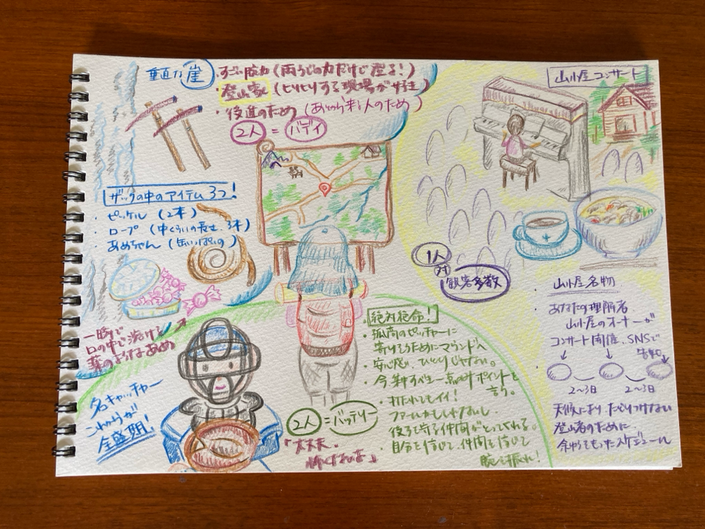 垂直な崖
・すごい脳力（両うでの力だけで登る！）
・登山家（ヒリヒリする現場が好き）
・後進のため（あとから来る人のため）
2人 = バディ
ザックの中のアイテム3つ！
・ピッケル（2本）
・ロープ（中くらいの長さ、3本）
あめちゃん（缶いっぱいの）
一瞬で
口の中で溶ける
薬のようなあめ
名キャッチャー
これからが
全盛期！
2人 = バッテリー
「大丈夫。
絶対絶命！
孤高のピッチャーに
寄りそうためにマウンドへ
安心しな、ひとりじゃない。
打たれてもイイ！
後ろを守る仲間がとってくれる。
自分を信じて、仲間を信じて
腕を振れ！
山小屋コンサート
1人
対
観客多数
山小屋名物
あなたの理解者
山小屋のオーナーが
コンサート開催、SNSで
告知
2〜3日
2〜3日
天候によりたどりつけない
登山者のために
余裕をもったスケジュール